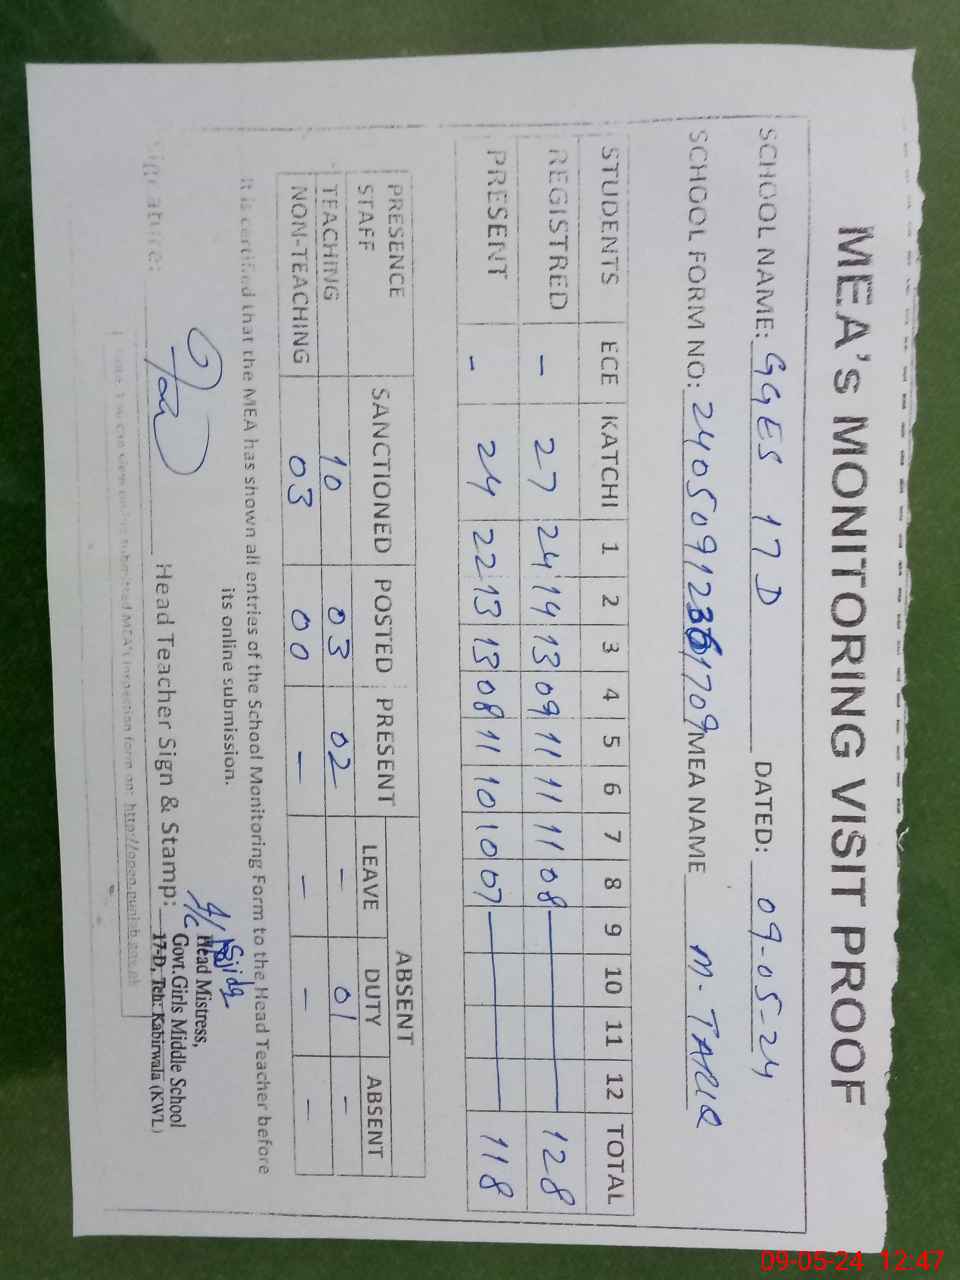 MEA's MONITORING VISIT PROOF
SCHOOL NAME: GGES 17 D DATED: 09-05-24
SCHOOL FORM NO: 24050912361709 MEA NAME M. TARIQ
STUDENTS ECE KATCHI 1 2 3 4 5 6 7 8 9 10 11 12 TOTAL
REGISTRED - 27 24 14 13 09 11 11 11 08 128
PRESENT - 24 22 13 13 08 11 10 10 07 118
PRESENCE STAFF SANCTIONED POSTED PRESENT ABSENT
LEAVE DUTY ABSENT
TEACHING 10 03 02 - 01 -
NON-TEACHING 03 00 - - - -
It is certified that the MEA has shown all entries of the School Monitoring Form to the Head Teacher before
its online submission.
Signature: Head Teacher Sign & Stamp:
Head Mistress,
Govt. Girls Middle School
17-D, Teh: Kabirwala (KWL)
Note: You can view online submitted MEA's inspection form on: http://open.punjab.gov.pk
09-05-24 12:47